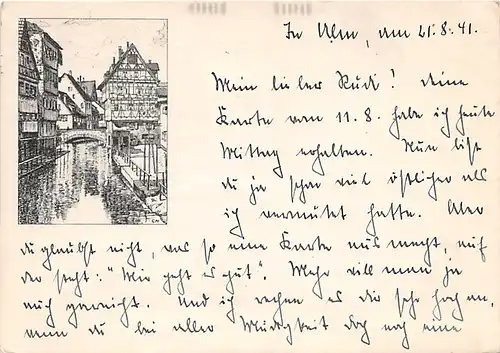 In Ulm, am 21.8.41.
Mein lieber Rudi! Deine
Karte vom 11.8. habe ich heute
Mittag erhalten. Nun bist
du ja schon viel östlicher als
ich vermutet hatte. Aber
du glaubst nicht, was so eine Karte ausmacht, auf
der steht: "Mir geht es gut". Mehr will man ja
auch garnicht. Und ich rechne es dir sehr hoch an,
wenn du bei aller Müdigkeit doch noch eine